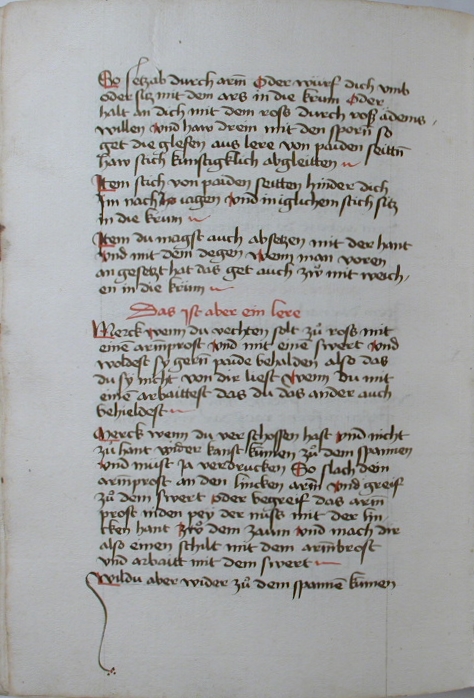 So setz ab durch arm̄ Oder würf dich vmb
oder sitz mit dem ars in die krum Oder
halt an dich mit dem ross durch ross adems
willen vnd haw drein mit den sporn̄ so
get die glesen aus lere von paiden seittn̄
haw stich kunstigklich abgleitten
Item stich von paiden seitten hinder dich
Im nach zo iagen vnd in iglichem stich sitz
in die krum
Item du magst auch absetzen mit der hant
vnd mit dem degen wenn man voren
an gesetzt hat das get auch zẘ mit weich
en in die krum
Das ist aber ein lere
Merck wenn du vechten solt zů ross mit
einē arm̄prost vnd mit einē swert vnd
woldest sy gern̄ paide behalden also das
du sy nicht von dir liest wenn du mit
einē arbaittest das du das ander auch
behieldest
Merck wenn du ver schossen hast vnd nicht
zu hant wider kanst kumen zů dem spannen
vnd must ja verdrucken So slach dein
arm̄prost an den lincken arm̄ vnd greif
zů dem swert oder begreif das arm̄
prost niden pey der nuss mit der lin
cken hant zẘ dem zaum vnd mach dir
also einen schilt mit dem arm̄brost
vnd arbait mit dem swert
Wildu aber wider zů dem spannē kumen